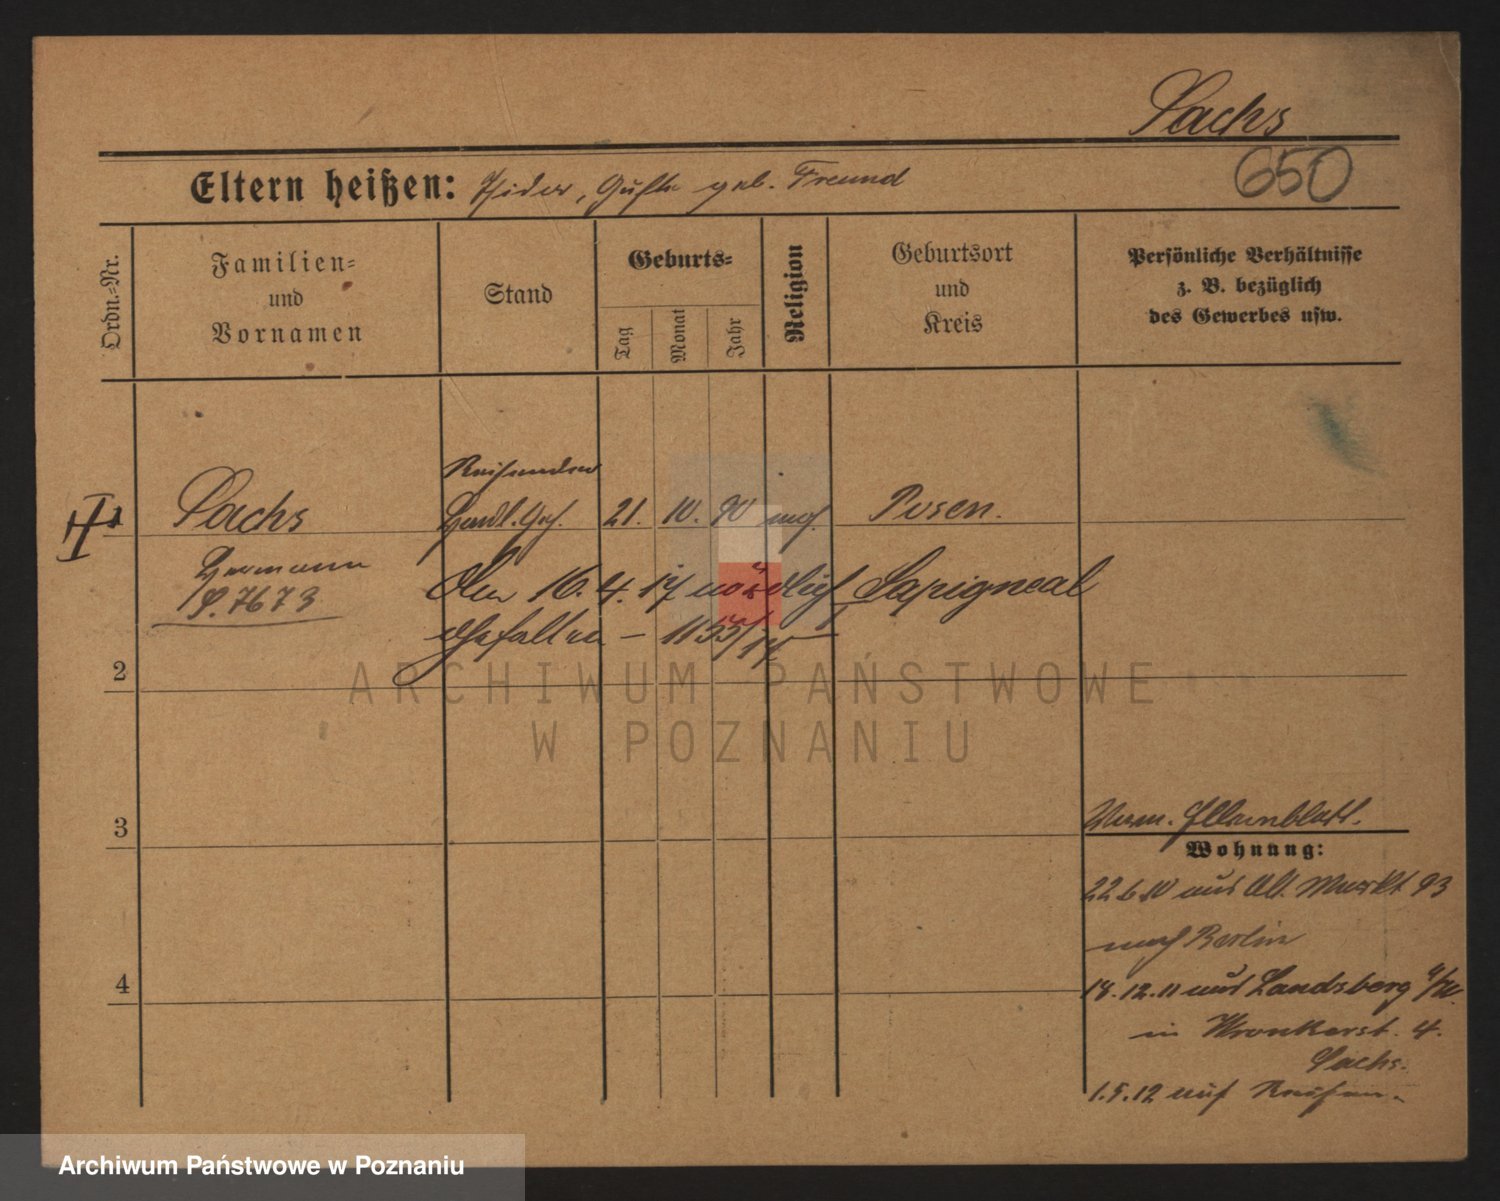 Sachs
650
Eltern heißen: Isidor, Guste geb. Freund
Ordn.-Nr.
Familien-
und
Vornamen
Stand
Geburts-
Tag
Monat
Jahr
Religion
Geburtsort
und
Kreis
Persönliche Verhältnisse
z. B. bezüglich
des Gewerbes usw.
Reisender
1 Sachs Handl. Geh. 21. 10. 90 mos. Posen.
Hermann
den 16. 4. 17 nördlich Sapigneal
7673
gefallen – 1155/17
2
3
4
ARCHIWUM PAŃSTWOWE
W POZNANIU
Verm. Elternblatt.
Wohnung:
22.6.10 aus Alt. Markt 93
nach Berlin
18.12.11 aus Landsberg a/W.
in Wronkerst. 4.
Sachs.
1.5.12 auf Reisen.
Archiwum Państwowe w Poznaniu